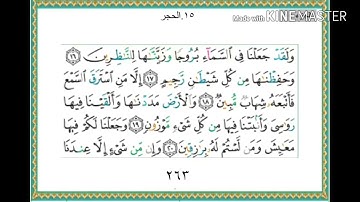 ١٥.الحجر
Made with KINEMASTER
وَلَقَدْ جَعَلْنَا فِى ٱلسَّمَآءِ بُرُوجًا وَزَيَّنَّـٰهَا لِلنَّـٰظِرِينَ ١٦
وَحَفِظْنَـٰهَا مِن كُلِّ شَيْطَـٰنٍ رَّجِيمٍ ١٧ إِلَّا مَنِ ٱسْتَرَقَ ٱلسَّمْعَ
فَأَتْبَعَهُۥ شِهَابٌ مُّبِينٌ ١٨ وَٱلْأَرْضَ مَدَدْنَـٰهَا وَأَلْقَيْنَا فِيهَا
رَوَٰسِىَ وَأَنۢبَتْنَا فِيهَا مِن كُلِّ شَىْءٍ مَّوْزُونٍ ١٩ وَجَعَلْنَا لَكُمْ فِيهَا
مَعَـٰيِشَ وَمَن لَّسْتُمْ لَهُۥ بِرَٰزِقِينَ ٢٠ وَإِن مِّن شَىْءٍ إِلَّا عِندَنَا
٢٦٣